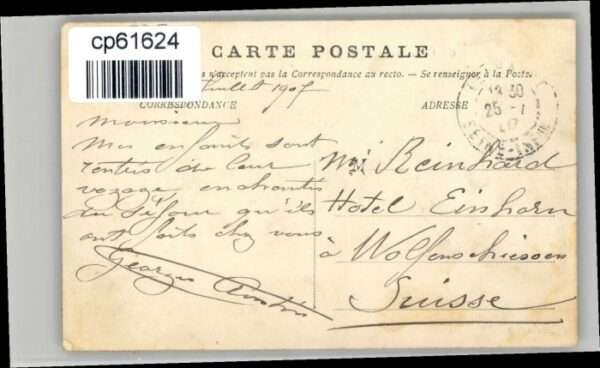 cp61624
CARTE POSTALE
n'acceptent pas la Correspondance au recto. — Se renseigner à la Poste.
Juillet 1907
CORRESPONDANCE
ADRESSE
13 30
25 - 7
07
SEINE-INFRE
Monsieur
Mes enfants sont
rentrés de leur
voyage enchantés
du séjour qu'ils
ont faits chez vous
Georges
Mr Reinhard
Hotel Einhorn
à Wolfenschiessen
Suisse